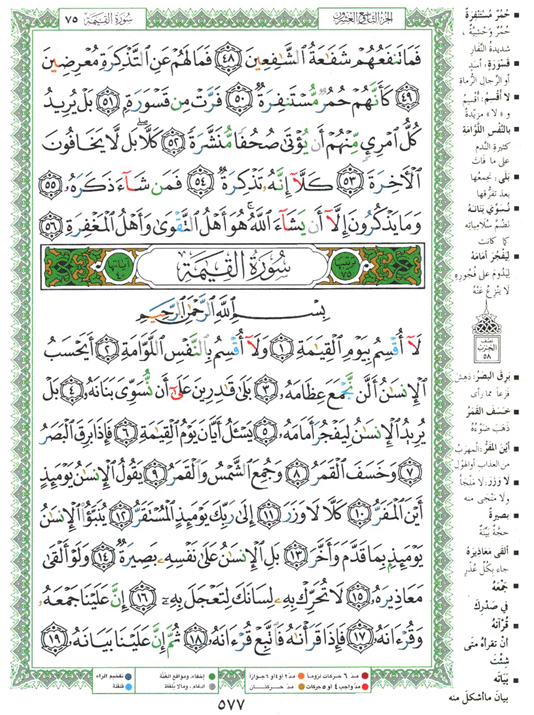 سُورَةُ القِيَامَةِ ٧٥
الجزء التاسع والعشرون
فَمَا تَنفَعُهُمْ شَفَاعَةُ ٱلشَّٰفِعِينَ ٤٨ فَمَا لَهُمْ عَنِ ٱلتَّذْكِرَةِ مُعْرِضِينَ
٤٩ كَأَنَّهُمْ حُمُرٌ مُّسْتَنفِرَةٌ ٥٠ فَرَّتْ مِن قَسْوَرَةٍۭ ٥١ بَلْ يُرِيدُ
كُلُّ ٱمْرِئٍ مِّنْهُمْ أَن يُؤْتَىٰ صُحُفًا مُّنَشَّرَةً ٥٢ كَلَّا ۖ بَل لَّا يَخَافُونَ
ٱلْءَاخِرَةَ ٥٣ كَلَّآ إِنَّهُۥ تَذْكِرَةٌ ٥٤ فَمَن شَآءَ ذَكَرَهُۥ ٥٥
وَمَا يَذْكُرُونَ إِلَّآ أَن يَشَآءَ ٱللَّهُ ۚ هُوَ أَهْلُ ٱلتَّقْوَىٰ وَأَهْلُ ٱلْمَغْفِرَةِ ٥٦
سُورَةُ ٱلْقِيَٰمَةِ
بِسْمِ ٱللَّهِ ٱلرَّحْمَٰنِ ٱلرَّحِيمِ
لَآ أُقْسِمُ بِيَوْمِ ٱلْقِيَٰمَةِ ١ وَلَآ أُقْسِمُ بِٱلنَّفْسِ ٱللَّوَّامَةِ ٢ أَيَحْسَبُ
ٱلْإِنسَٰنُ أَلَّن نَّجْمَعَ عِظَامَهُۥ ٣ بَلَىٰ قَٰدِرِينَ عَلَىٰٓ أَن نُّسَوِّىَ بَنَانَهُۥ ٤ بَلْ
يُرِيدُ ٱلْإِنسَٰنُ لِيَفْجُرَ أَمَامَهُۥ ٥ يَسْـَٔلُ أَيَّانَ يَوْمُ ٱلْقِيَٰمَةِ ٦ فَإِذَا بَرِقَ ٱلْبَصَرُ
٧ وَخَسَفَ ٱلْقَمَرُ ٨ وَجُمِعَ ٱلشَّمْسُ وَٱلْقَمَرُ ٩ يَقُولُ ٱلْإِنسَٰنُ يَوْمَئِذٍ
أَيْنَ ٱلْمَفَرُّ ١٠ كَلَّا لَا وَزَرَ ١١ إِلَىٰ رَبِّكَ يَوْمَئِذٍ ٱلْمُسْتَقَرُّ ١٢ يُنَبَّؤُا۟ ٱلْإِنسَٰنُ
يَوْمَئِذٍۭ بِمَا قَدَّمَ وَأَخَّرَ ١٣ بَلِ ٱلْإِنسَٰنُ عَلَىٰ نَفْسِهِۦ بَصِيرَةٌ ١٤ وَلَوْ أَلْقَىٰ
مَعَاذِيرَهُۥ ١٥ لَا تُحَرِّكْ بِهِۦ لِسَانَكَ لِتَعْجَلَ بِهِۦٓ ١٦ إِنَّ عَلَيْنَا جَمْعَهُۥ
وَقُرْءَانَهُۥ ١٧ فَإِذَا قَرَأْنَٰهُ فَٱتَّبِعْ قُرْءَانَهُۥ ١٨ ثُمَّ إِنَّ عَلَيْنَا بَيَانَهُۥ ١٩
حُمُرٌ مُسْتَنْفِرَةٌ
حُمُرٌ وَحْشِيَّةٌ،
شديدة النِّفار
قَسْوَرَةٍ: أسد
أو الرِّجال الرُّماة
لا أُقسِمُ: أقسِم
و «لا» مزيدة
بالنَّفْسِ اللَّوَّامَةِ
كثيرة الندم
على ما فات
بَلَى: نجمعها
بعد تفرقها
نُسَوِّيَ بَنَانَهُ
نضم سلامياته
كما كانت
لِيَفْجُرَ أَمَامَهُ
ليدوم على فجوره
لا ينزع عنه
نصف
الحزب
٥٨
بَرِقَ البَصَرُ: دهش
فزعا مما رأى
خَسَفَ القَمَرُ
ذهب ضوؤه
أَيْنَ المَفَرُّ: المهرب
من العذاب أو الهول
لا وَزَرَ: لا ملجأ
ولا منجى منه
بَصِيرَةٌ
حجة بينة
أَلْقَى مَعَاذِيرَهُ
جاء بكل عذر
جَمْعَهُ
في صدرك
قُرْآنَهُ
أن تقرأه متى
شئت
بَيَانَهُ
بيان ما أشكل منه
مدّ ٦ حركات لزوماً
مدّ ٢ أو ٤ أو ٦ جوازاً
إخفاء، ومواقع الغُنَّة
تفخيم الراء
مدّ واجب ٤ أو ٥ حركات
مدّ حركتان
ادغام، ومالا يلفظ
قلقلة
٥٧٧